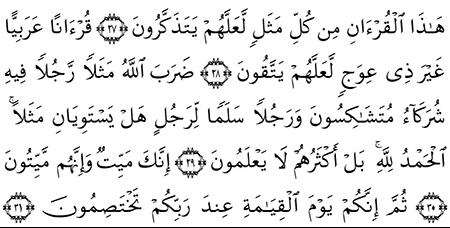 هَـٰذَا ٱلْقُرْءَانِ مِن كُلِّ مَثَلٍ لَّعَلَّهُمْ يَتَذَكَّرُونَ ﴿٢٧﴾ قُرْءَانًا عَرَبِيًّا
غَيْرَ ذِى عِوَجٍ لَّعَلَّهُمْ يَتَّقُونَ ﴿٢٨﴾ ضَرَبَ ٱللَّهُ مَثَلًا رَّجُلًا فِيهِ
شُرَكَآءُ مُتَشَـٰكِسُونَ وَرَجُلًا سَلَمًا لِّرَجُلٍ هَلْ يَسْتَوِيَانِ مَثَلًا ۚ
ٱلْحَمْدُ لِلَّهِ ۚ بَلْ أَكْثَرُهُمْ لَا يَعْلَمُونَ ﴿٢٩﴾ إِنَّكَ مَيِّتٌ وَإِنَّهُم مَّيِّتُونَ
﴿٣٠﴾ ثُمَّ إِنَّكُمْ يَوْمَ ٱلْقِيَـٰمَةِ عِندَ رَبِّكُمْ تَخْتَصِمُونَ ﴿٣١﴾